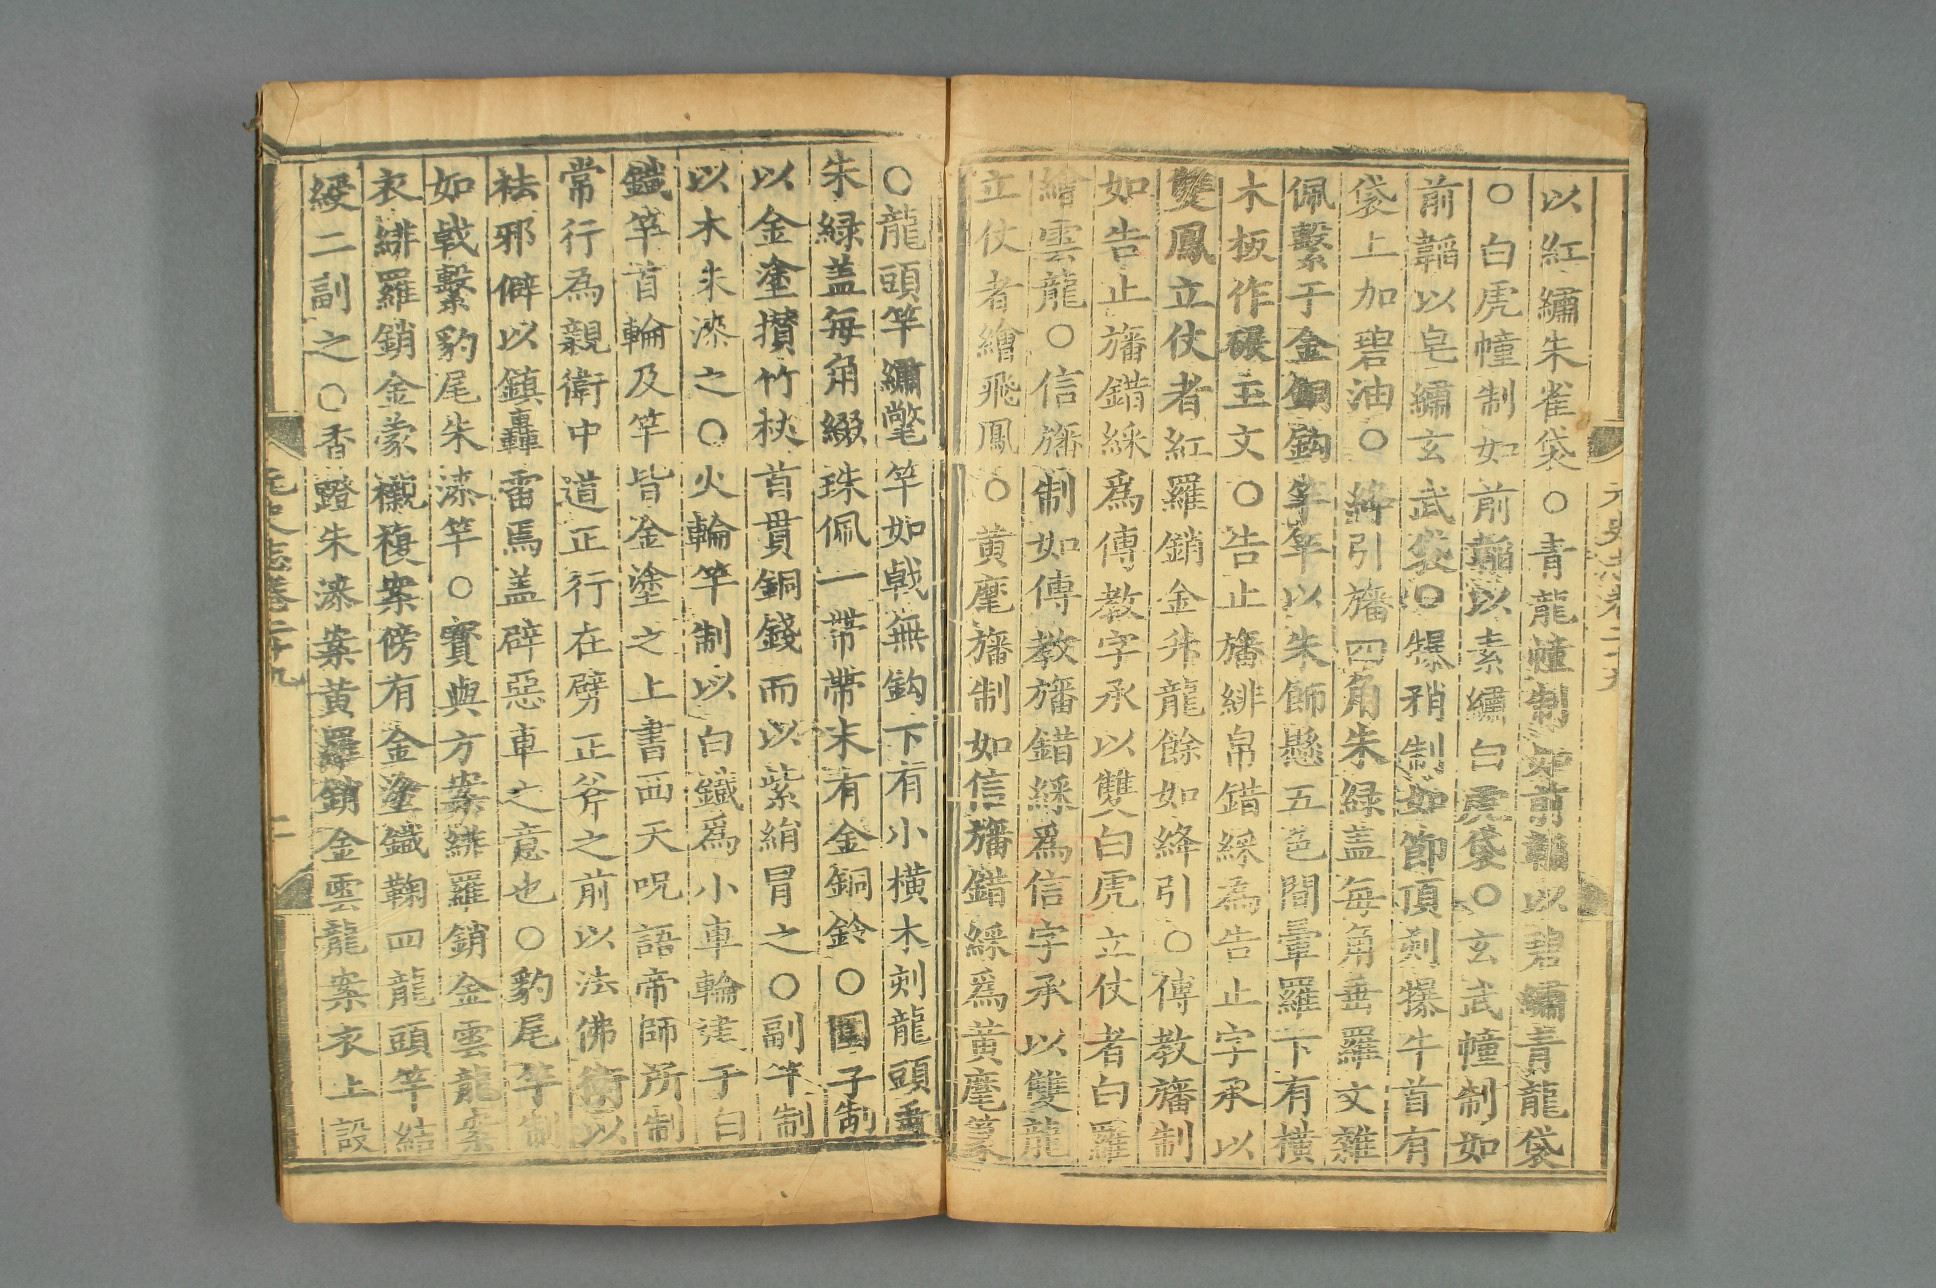 以紅繡朱雀袋○青龍幢制如前韜以碧繡青龍袋
○白虎幢制如前韜以素繡白虎袋○玄武幢制如
前韜以皂繡玄武袋○犦矟制如節頂刻犦牛首有
袋上加碧油○絳引旛四角朱綠盖每角垂羅文雜
佩繫于金銅鈎竿竿以朱飾懸五色間暈羅下有横
木板作碾玉文○告止旛緋帛錯綵為告止字承以
雙鳳立仗者紅羅銷金升龍餘如絳引○傳教旛制
如告止旛錯綵爲傳教字承以雙白虎立仗者白羅
繪雲龍○信旛制如傳教旛錯綵爲信字承以雙龍
立仗者繪飛鳳○黃麾旛制如信旛錯綵爲黃麾篆
○龍頭竿繡氅竿如戟無鈎下有小横木刻龍頭垂
朱綠盖每角綴珠佩一帶帶末有金銅鈴○圍子制
以金塗攢竹杖首貫銅錢而以紫絹冒之○副竿制
以木朱漆之○火輪竿制以白鐵爲小車輪建于白
鐵竿首輪及竿皆金塗之上書西天呪語帝師所制
常行為親衛中道正行在劈正斧之前以法佛衛以
祛邪僻以鎮轟雷焉盖辟惡車之意也○豹尾竿制
如戟繫豹尾朱漆竿○寳輿方案緋羅銷金雲龍案
衣緋羅銷金蒙襯複案傍有金塗鐵鞠四龍頭竿結
綬二副之○香蹬朱漆案黃羅銷金雲龍案衣上設
元史志卷二十九
二